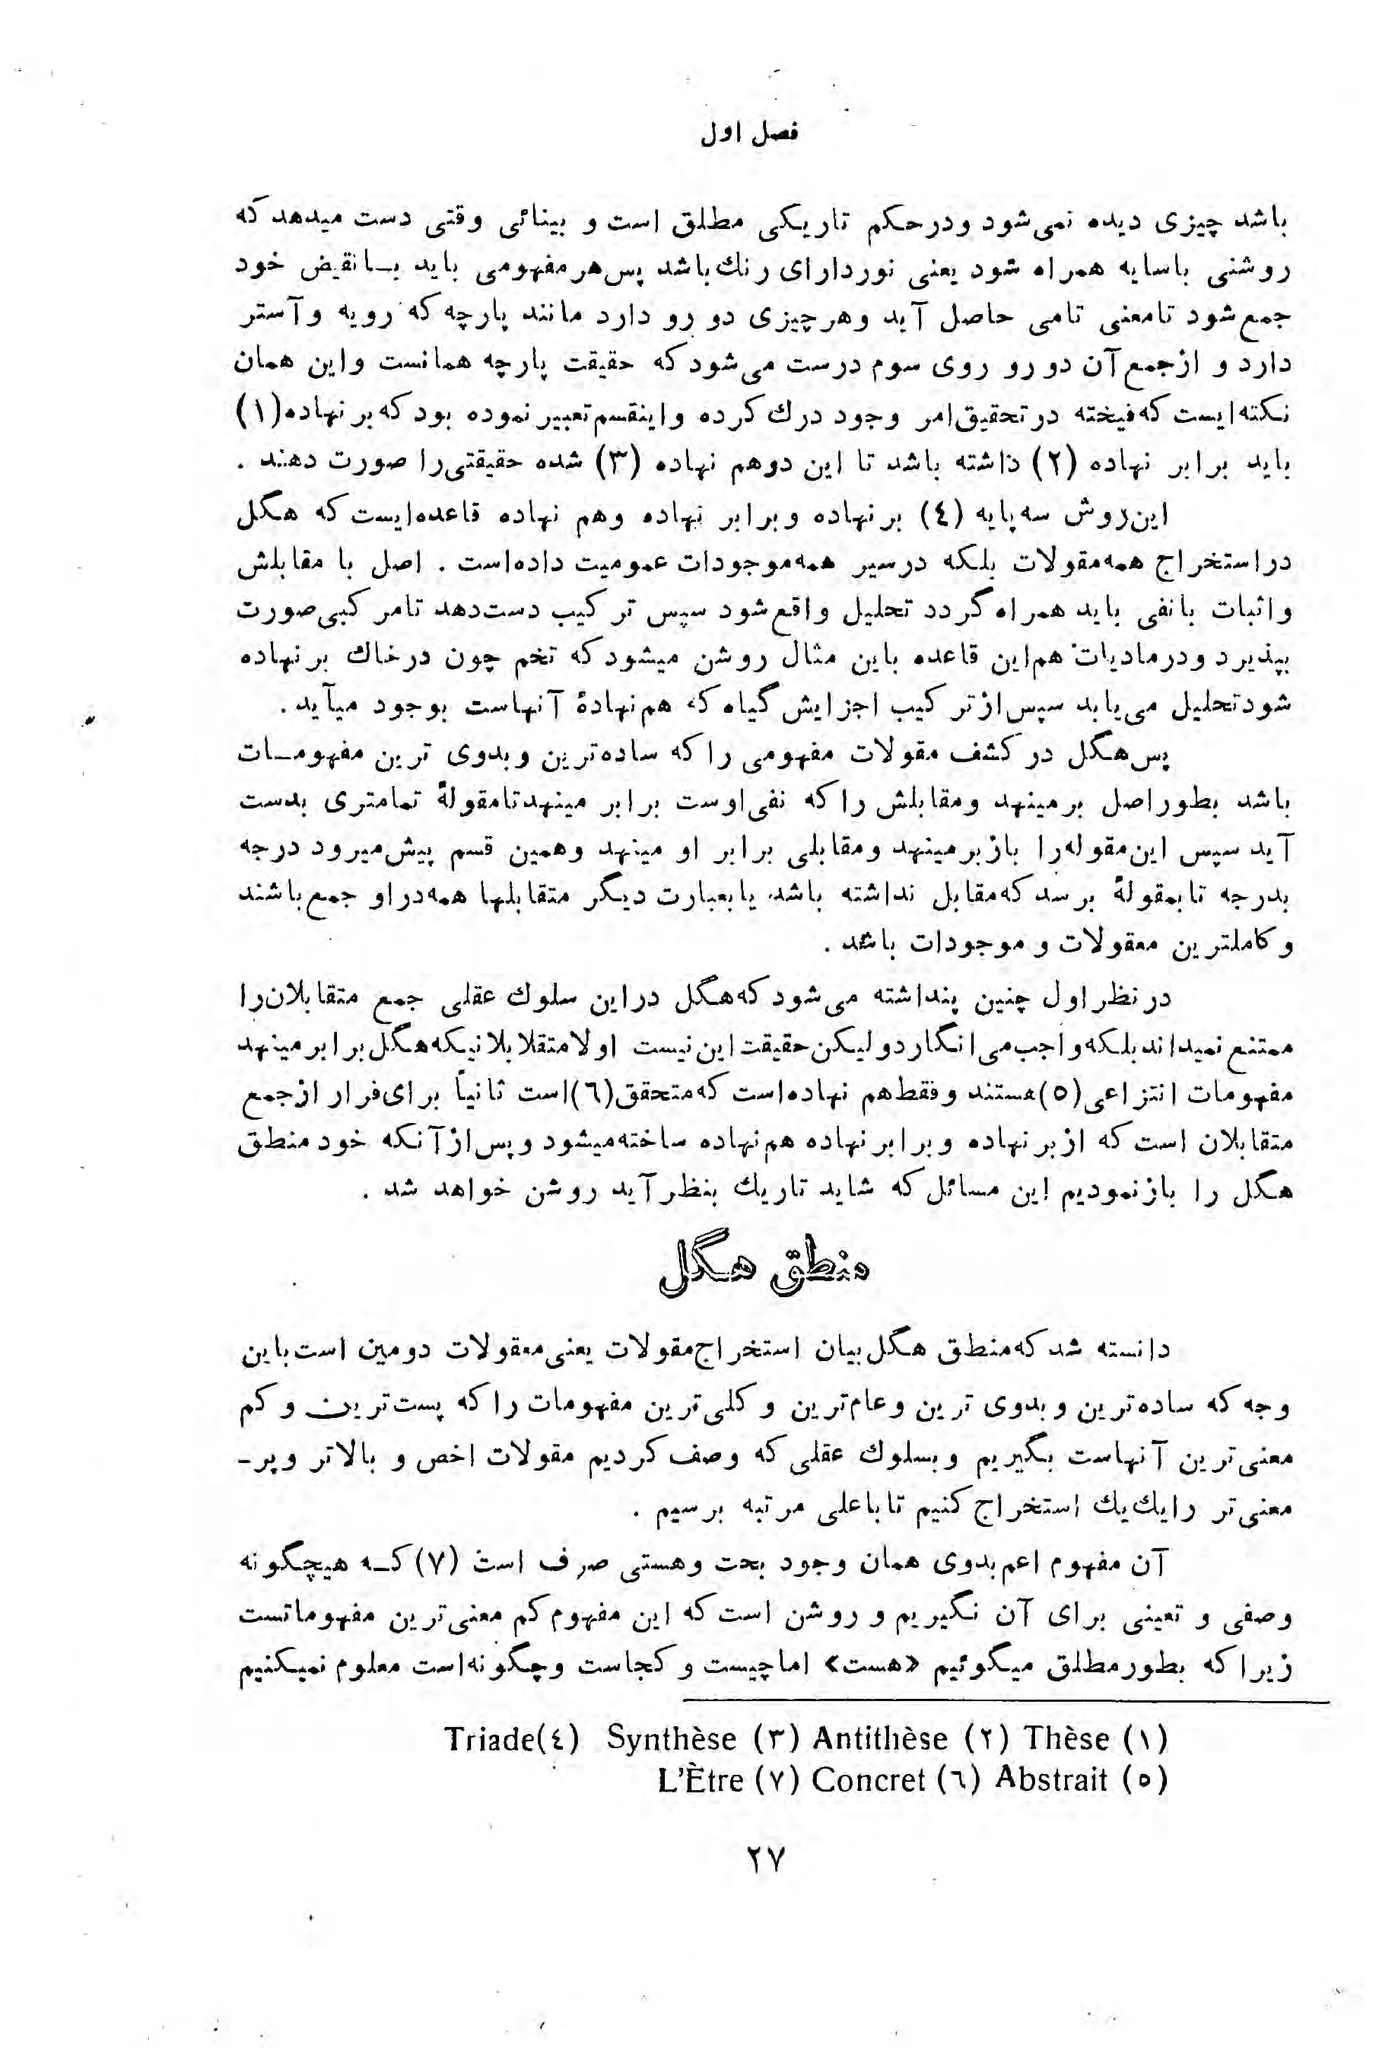 فصل اول
باشد چیزی دیده نمی‌شود ودرحکم تاریکی مطلق است و بینائی وقتی دست میدهد که
روشنی باسایه همراه شود یعنی نوردارای رنك باشد پس هرمفهومی باید بـانقیض خود
جمع شود تامعنی تامی حاصل آید وهرچیزی دو رو دارد مانند پارچه که رویه وآستر
دارد و ازجمع آن دو رو روی سوم درست می‌شود که حقیقت پارچه همانست واین همان
نکته ایست که فیخته درتحقیق امر وجود درك کرده واینقسم تعبیر نموده بود که برنهاده(۱)
باید برابر نهاده (۲) داشته باشد تا این دوهم نهاده (۳) شده حقیقتی را صورت دهند .
این روش سه پایه (٤) برنهاده وبرابر نهاده وهم نهاده قاعده‌ایست که هگل
دراستخراج همه مقولات بلکه درسیر همه موجودات عمومیت داده‌است . اصل با مقابلش
واثبات بانفی باید همراه گردد تحلیل واقع شود سپس ترکیب دست دهد تامرکبی صورت
بپذیرد ودرمادیات هم این قاعده باین مثال روشن میشود که تخم چون درخاك برنهاده
شود تحلیل می‌یابد سپس ازترکیب اجزایش گیاه که هم نهادهٔ آنهاست بوجود میآید.
پس هگل در کشف مقولات مفهومی را که ساده‌ترین وبدوی ترین مفهومـات
باشد بطوراصل برمینهد ومقابلش را که نفی اوست برابر مینهد تامقولهٔ تمامتری بدست
آید سپس این مقوله را بازبرمینهد ومقابلی برابر او مینهد وهمین قسم پیش میرود درجه
بدرجه تابمقولهٔ برسد که مقابل نداشته باشد یابعبارت دیگر متقابلها همه دراو جمع باشند
وکاملترین معقولات و موجودات باشد .
درنظر اول چنین پنداشته می‌شود که هگل دراین سلوك عقلی جمع متقابلان را
ممتنع نمیداند بلکه واجب می انگارد ولیکن حقیقت این نیست اولا متقلابلانیکه هگل برابر مینهد
مفهومات انتزاعی (۵) هستند وفقط هم نهاده است که متحقق (٦) است ثانیاً برای فرار ازجمع
متقابلان است که ازبرنهاده وبرابرنهاده هم نهاده ساخته میشود وپس ازآنکه خود منطق
هگل را بازنمودیم این مسائل که شاید تاریك بنظرآید روشن خواهد شد .
منطق هگل
دانسته شد که منطق هگل بیان استخراج مقولات یعنی معقولات دومین است باین
وجه که ساده‌ترین وبدوی ترین وعام‌ترین وکلی‌ترین مفهومات را که پست‌ترین وکم
معنی‌ترین آنهاست بگیریم وبسلوك عقلی که وصف کردیم مقولات اخص و بالاتر وپر-
معنی‌تر رایك یك استخراج کنیم تا باعلی مرتبه برسیم .
آن مفهوم اعم بدوی همان وجود بحت وهستی صرف است (۷) کـه هیچگونه
وصفی و تعینی برای آن نگیریم و روشن است که این مفهوم کم معنی‌ترین مفهوماتست
زیرا که بطورمطلق میگوئیم «هست» اماچیست و کجاست وچگونه‌است معلوم نمیکنیم
(۱) Thèse (۲) Antithèse (۳) Synthèse (٤)Triade
(۵) Abstrait (٦) Concret (۷) L'Ètre
۲۷